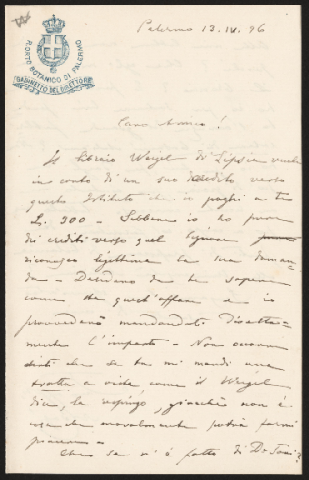 R. ORTO BOTANICO DI PALERMO
GABINETTO DEL DIRETTORE
Palermo 13. IV. 96
Caro Amico!
Il libraio Weigel di Lipsia vuole
in conto di un suo credito verso
questo Istituto che io paghi a te
L. 300 – Sebbene io ho
di crediti verso quel
riconosco legittima la sua doman-
da – Desidero da te sapere
come sta quest'affare e io
provvederò mandandoti diretta-
mente l'importo – Non
che se tu mi mandi una
tratta a vista come il Weigel
dice, la respingo, giacchè non è
cosa che moralmente potrà farmi
piacere
Che se n'è fatto di De Toni?